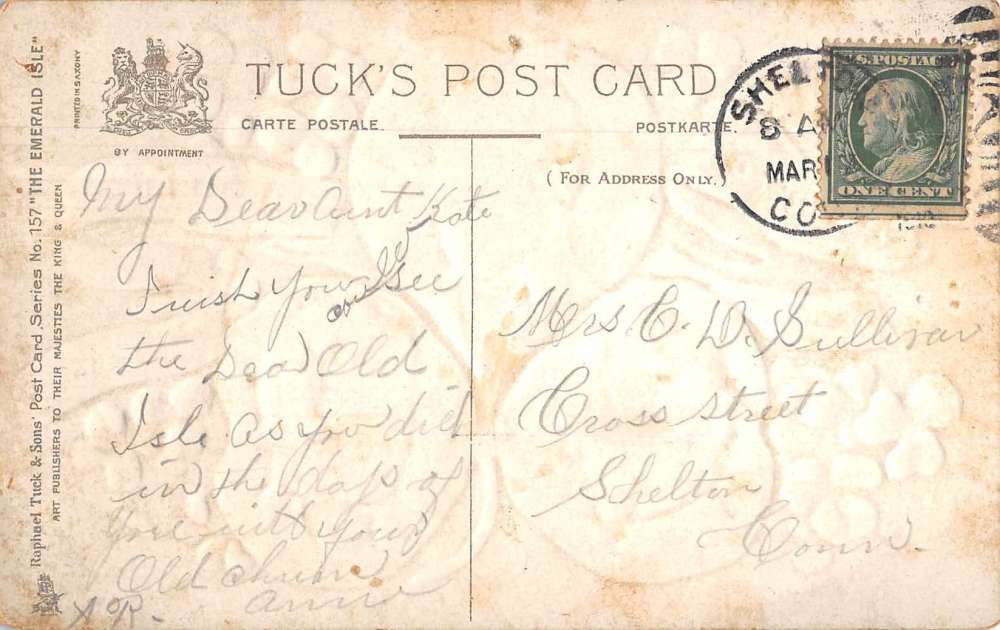 Raphael Tuck & Sons' Post Card, Series No. 157 "THE EMERALD ISLE"
ART PUBLISHERS TO THEIR MAJESTIES THE KING & QUEEN
PRINTED IN SAXONY
BY APPOINTMENT
TUCK'S POST CARD
CARTE POSTALE.
POSTKARTE.
(FOR ADDRESS ONLY.)
SHELTON
8 AM
MAR
CO
1910
U.S. POSTAGE
ONE CENT
My Dear Aunt Kate
I wish you
could See
the Dear Old
Isle as you did
in the days of
yore with your
Old chum
Anne
Mrs C. D. Sullivan
Cross street
Shelton
Conn.